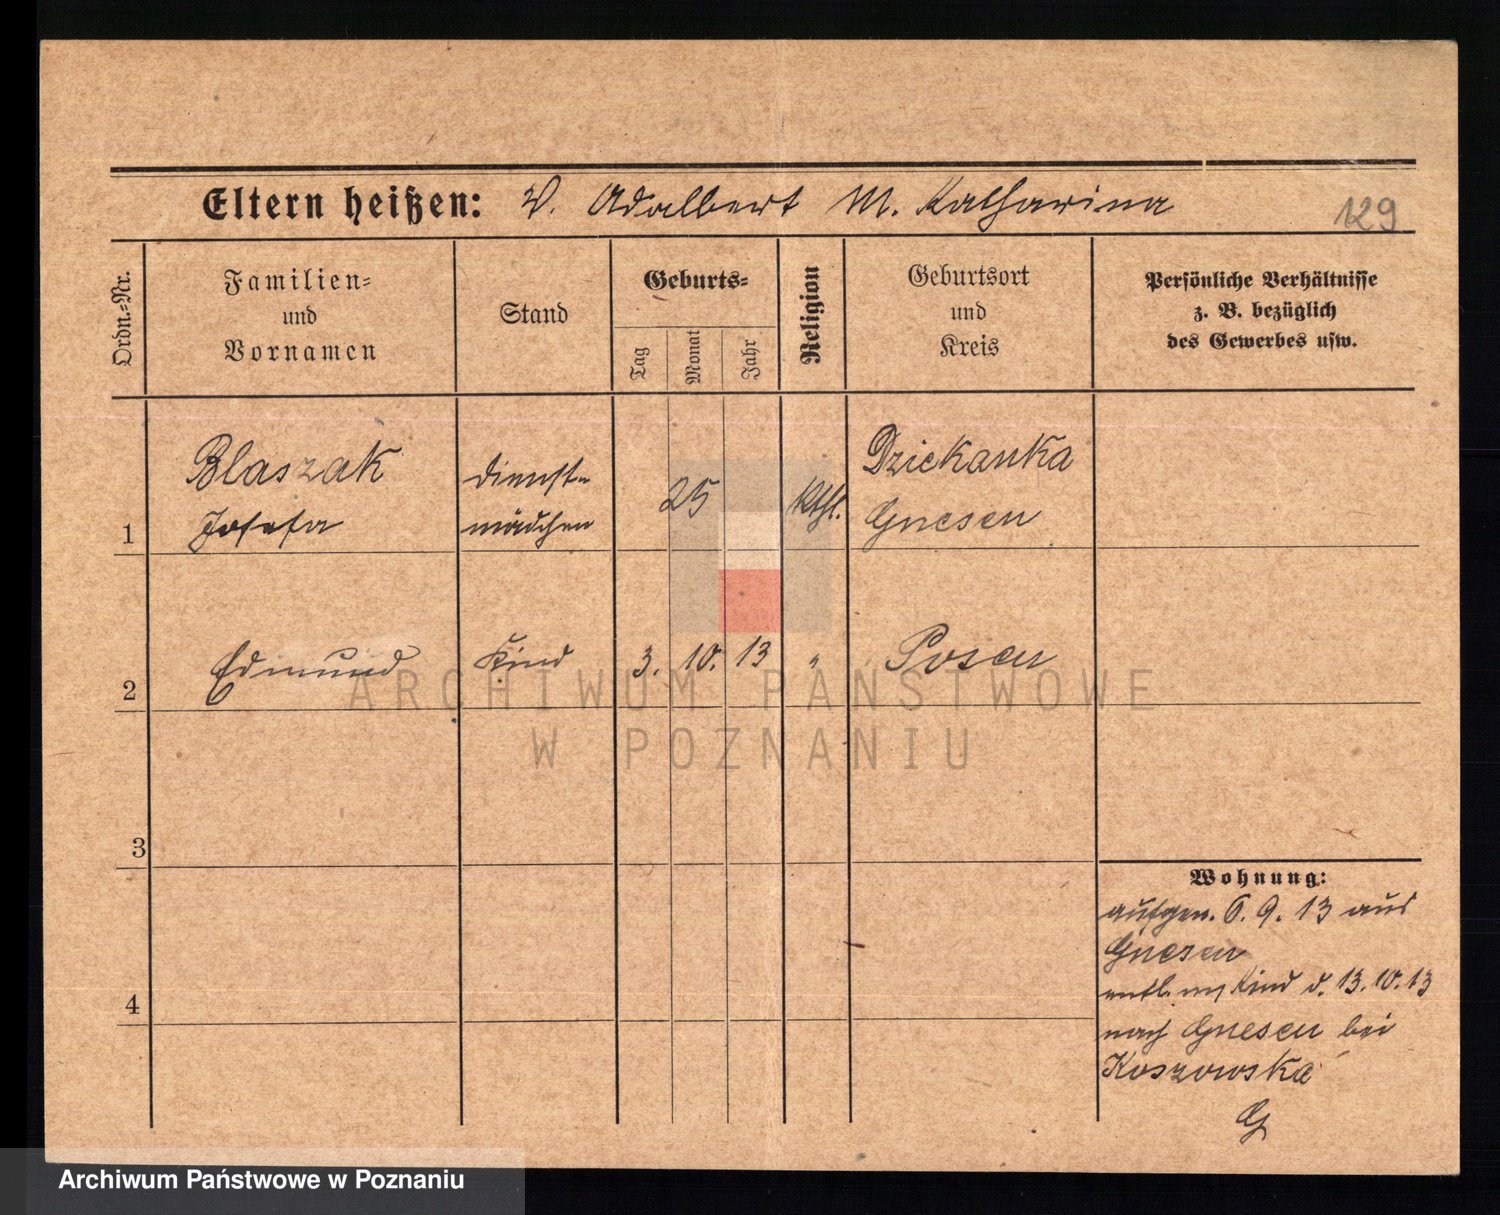 Eltern heißen: V. Adalbert M. Katharina
129
Ordn.-Nr.
Familien-
und
Vornamen
Stand
Geburts-
Tag
Monat
Jahr
Religion
Geburtsort
und
Kreis
Persönliche Verhältnisse
z. B. bezüglich
des Gewerbes usw.
1
Blaszak
Josefa
Dienst-
mädchen
25
kthl.
Dziekanka
Gnesen
2
Edmund
Kind
3. 10. 13
"
Posen
ARCHIWUM PAŃSTWOWE
W POZNANIU
3
4
Wohnung:
aufgen. 6. 9. 13 aus
Gnesen
entl. m/ Kind d. 13. 10. 13
nach Gnesen bei
Koszowska
G
Archiwum Państwowe w Poznaniu